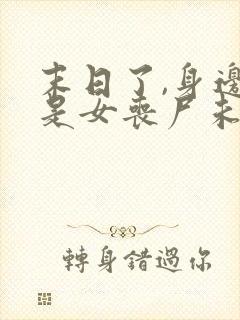 末日了,身邊
是女喪尸未
轉身錯過你